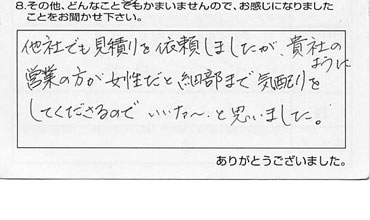 8.その他、どんなことでもかまいませんので、お感じになりました
ことをお聞かせ下さい。
他社でも見積りを依頼しましたが、貴社の
ように
営業の方が女性だと細部まで気配りを
してくださるので いいな〜。と思いました。
ありがとうございました。